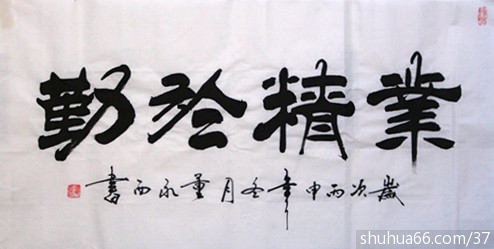 業精於勤
歲次丙申年冬月董永西書
shuhua66.com/37